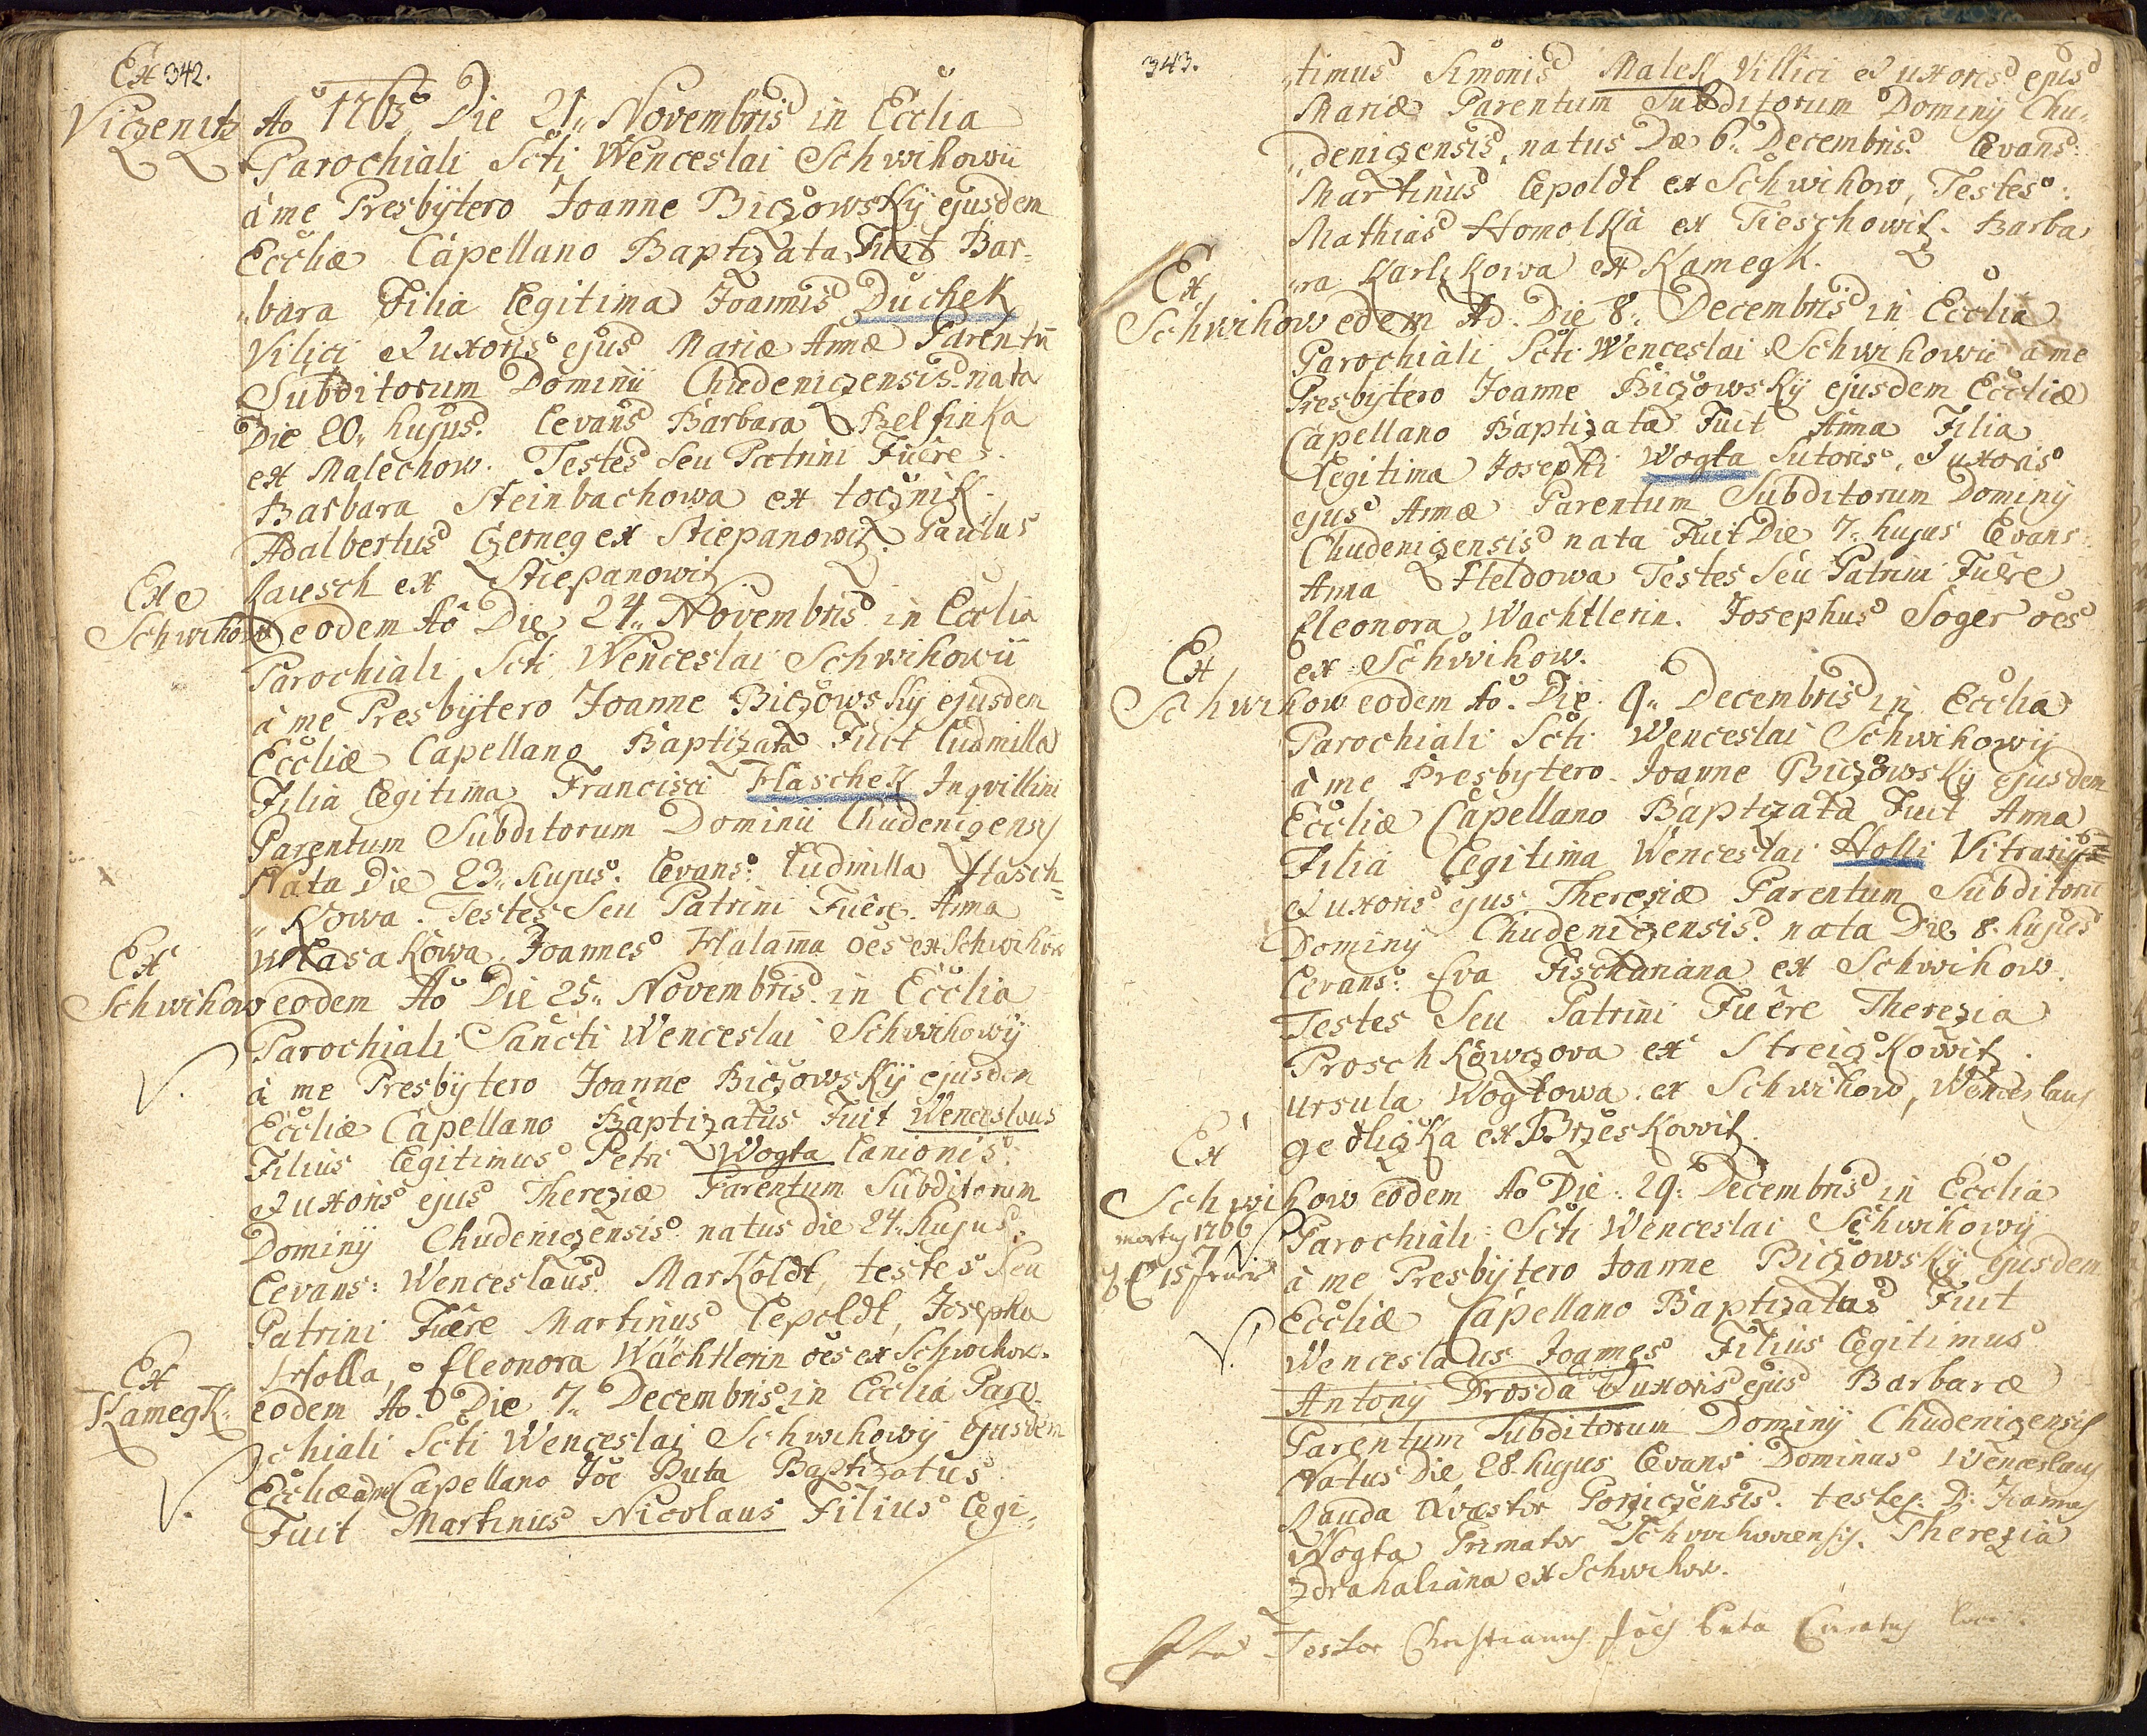 Ex 342.
Viczenitz Ao 1765 Die 21„ Novembris in Ecclia
Parochiali Scti Wenceslai Schwihowii
à me Presbÿtero Joanne Biczowskÿ ejusdem
Eccliæ Capellano Baptizata Fuit Bar„
„bara Filia Legitima Joannis Duchek
Vilici & uxoris ejus Mariæ Annæ Parentũ
Subditorum Dominii Chudeniczensis. nata
Die 20„ hujus. Levans Barbara Belfinka
ex Malechow. Testes Seu Patrini Fuêre
Barbara Steinbachowa ex
Adalbertus Czerneg ex Stiepanowiz. Paulus
Rausch ex Stiepanowiz
Ex
Schwihow eodem Ao Die 24„ Novembris in Ecclia
Parochiali Scti Wenceslai Schwihowii
à me Presbÿtero Joanne Biczowskÿ ejusdem
Eccliæ Capellano Baptizata Fuit Ludmilla
Filia Legitima Francisci Hlaschek Inqvillini
Parentum Subditorum Dominii Chudenizensis
Nata Die 23„ hujus. Levans: Ludmilla Hlasch„
„kowa. Testes Seu Patrini Fuêre. Anna
Wlasakowa. Joannes Halama oes ex Schwihow
Ex
Schwihow eodem Ao Die 25„ Novembris in Ecclia
Parochiali Sancti Wenceslai Schwihowÿ
V. à me Presbÿtero Joanne Biczowskÿ ejusdem
Eccliæ Capellano Baptizatus Fuit Wenceslaus
Filius Legitimus Petri Wogta Lanionis
& uxoris ejus Thereziæ Parentum Subditorum
Dominÿ Chudeniczensis natus die 24„ hujus.
Levans: Wenceslaus Markoldt, testes Seu
Patrini Fuêre Martinus Lepoldt, Josepha
Holla, Eleonora Wächtlerin oes ex Schwihow.
Ex
Kamegk. eodem Ao. Die 7„ Decembris in Ecclia Paro
chiali Scti Wenceslai Schwihowÿ ejusdem
V. Eccliæ à me Capellano Joe Buta Baptizatus
Fuit Martinus Nicolaus Filius Legi„
343.
„timus Simonis Malek Villici & uxoris ejus
Mariæ Parentum Subditorum Dominÿ Chu„
„deniczensis, natus Dæ 6„ Decembris. Levans:
Martinus Lepoldt ex Schwihow, Testes:
Mathias Homolka ex Tieschowitz. Barba
„ra Karlikowa ex Kamegk.
Ex
Schwihow edem Ao. Die 8„ Decembris in Ecclia
Parochiali Scti Wenceslai Schwihowii à me
Presbÿtero Joanne Biczowskÿ ejusdem Eccliæ
Capellano Baptizata Fuit Anna Filia
Legitima Josephi Wogta Sutoris, & uxoris
ejus Annæ Parentum Subditorum Dominÿ
Chudeniczensis nata Fuit Die 7„ hujus Levans:
Anna Heldowa Testes Seu Patrini Fuêre
Eleonora Wachtlerin. Josephus Soger oes
ex Schwihow.
Ex
Schwihow eodem Ao. Die 9„ Decembris in Ecclia
Parochiali Scti Wenceslai Schwihowÿ
à me Presbytero Joanne Biczowskÿ ejusdem
Eccliæ Capellano Baptizata Fuit Anna
Filia Legitima Wenceslai Holli Vitrarÿ
& uxoris ejus Thereziæ Parentum Subditorũ
Dominÿ Chudeniczensis. nata Die 8. hujus
Levans: Eva Fischariana ex Schwihow.
Testes Seu Patrini Fuêre Therezia
Proschkowczova ex Streiczkowitz.
Ursula Wogtowa ex Schwihow, Wenceslaus
gedliczka ex Brzeskowitz.
Ex
Schwihow eodem Ao Die 29. Decembris in Ecclia
Parochiali Scti Wenceslai Schwihowÿ
mortuus 1766
à me Presbÿtero Joanne Biczowskÿ ejusdem
Eccliæ Capellano Baptizatus Fuit
V. Wenceslaus Joannes Filius Legitimus
Antonÿ Drosda & uxoris ejus Barbaræ
Parentum Subditorum Dominÿ Chudeniczensis
Natus Die 28. hujus Levans Dominus Wenceslaus
Lauda Qvæstor Porziczensis. testes. D. Joannes
Wogta Primator Schwihoviensis. Therezia
Zdrahaliana ex Schwihow.
Ita Testor Christianus Joes Buta Curatus loci.